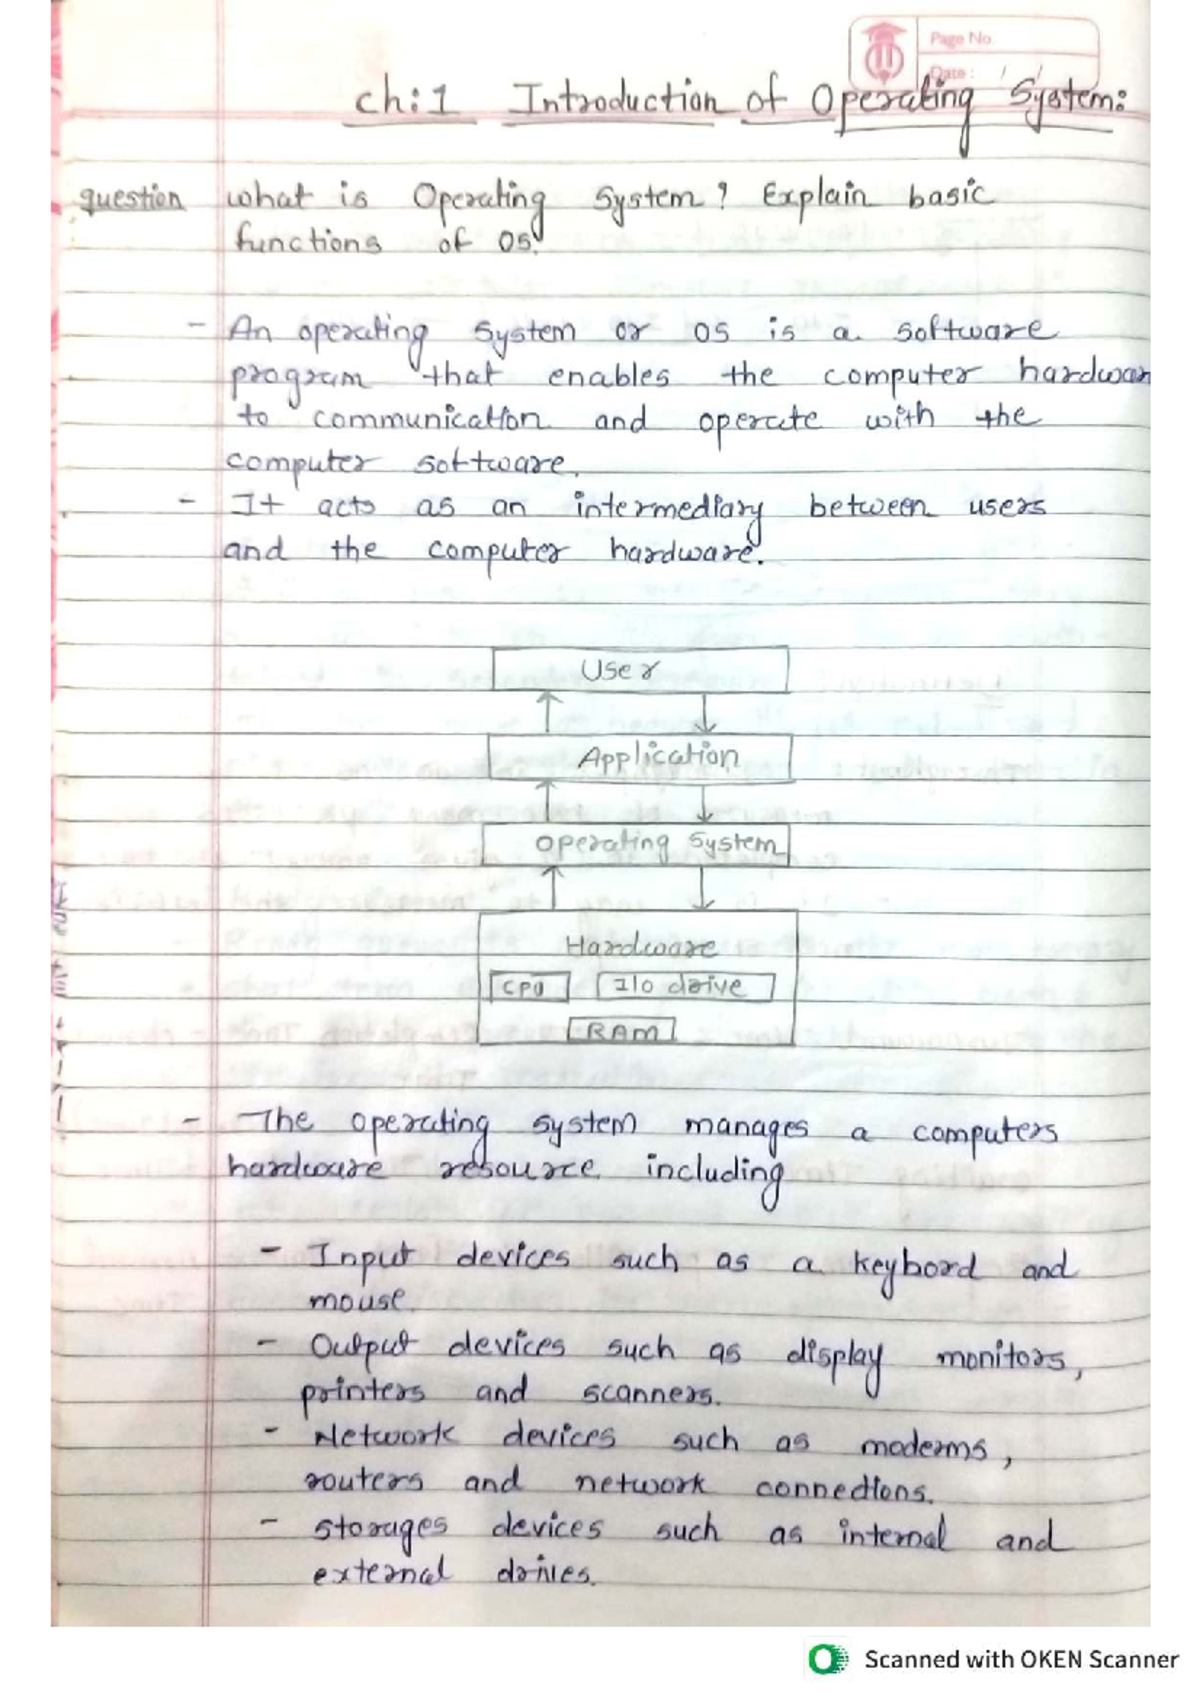 Page No.
Date: / /
ch:1 Introduction of Operating System:
question what is Operating System? Explain basic
functions of OS.
- An operating System or OS is a software
program that enables the computer hardwar
to communication and operate with the
computer software.
- It acts as an intermediary between users
and the computer hardware.
User
Application
Operating System
Hardware
CPU I/O drive
RAM
- The operating system manages a computers
hardware resource including
- Input devices such as a keybord and
mouse.
- Output devices such as display monitors,
printers and scanners.
- Network devices such as modems,
routers and network connections.
- Storages devices such as internal and
external drives.
Scanned with OKEN Scanner